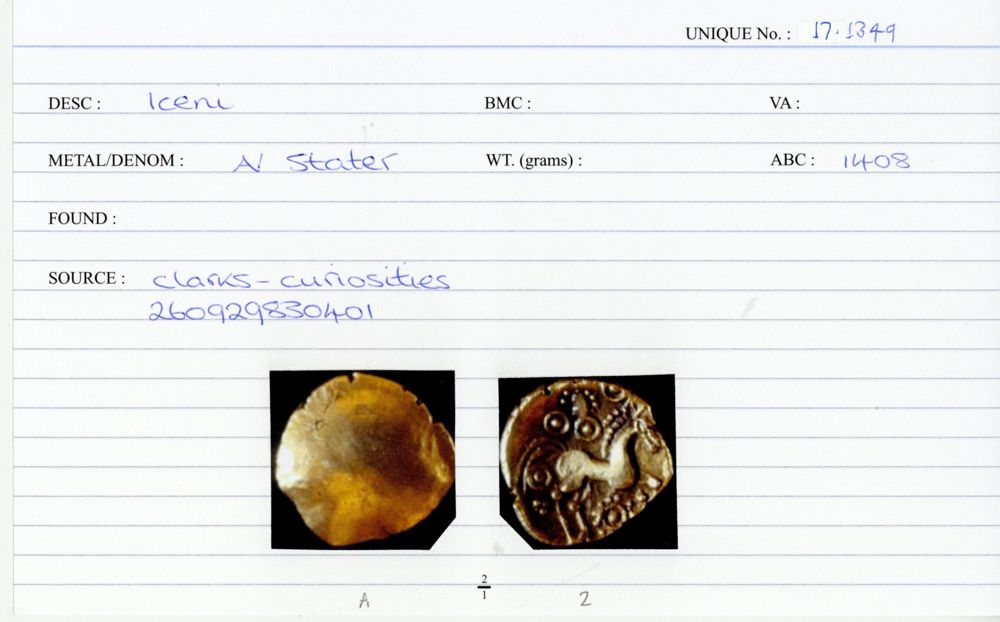 UNIQUE No. : 17.1349
DESC : Iceni BMC : VA :
METAL/DENOM : N Stater WT. (grams) : ABC : 1408
FOUND :
SOURCE : clarks-curiosities
260929830401
2
1
A 2